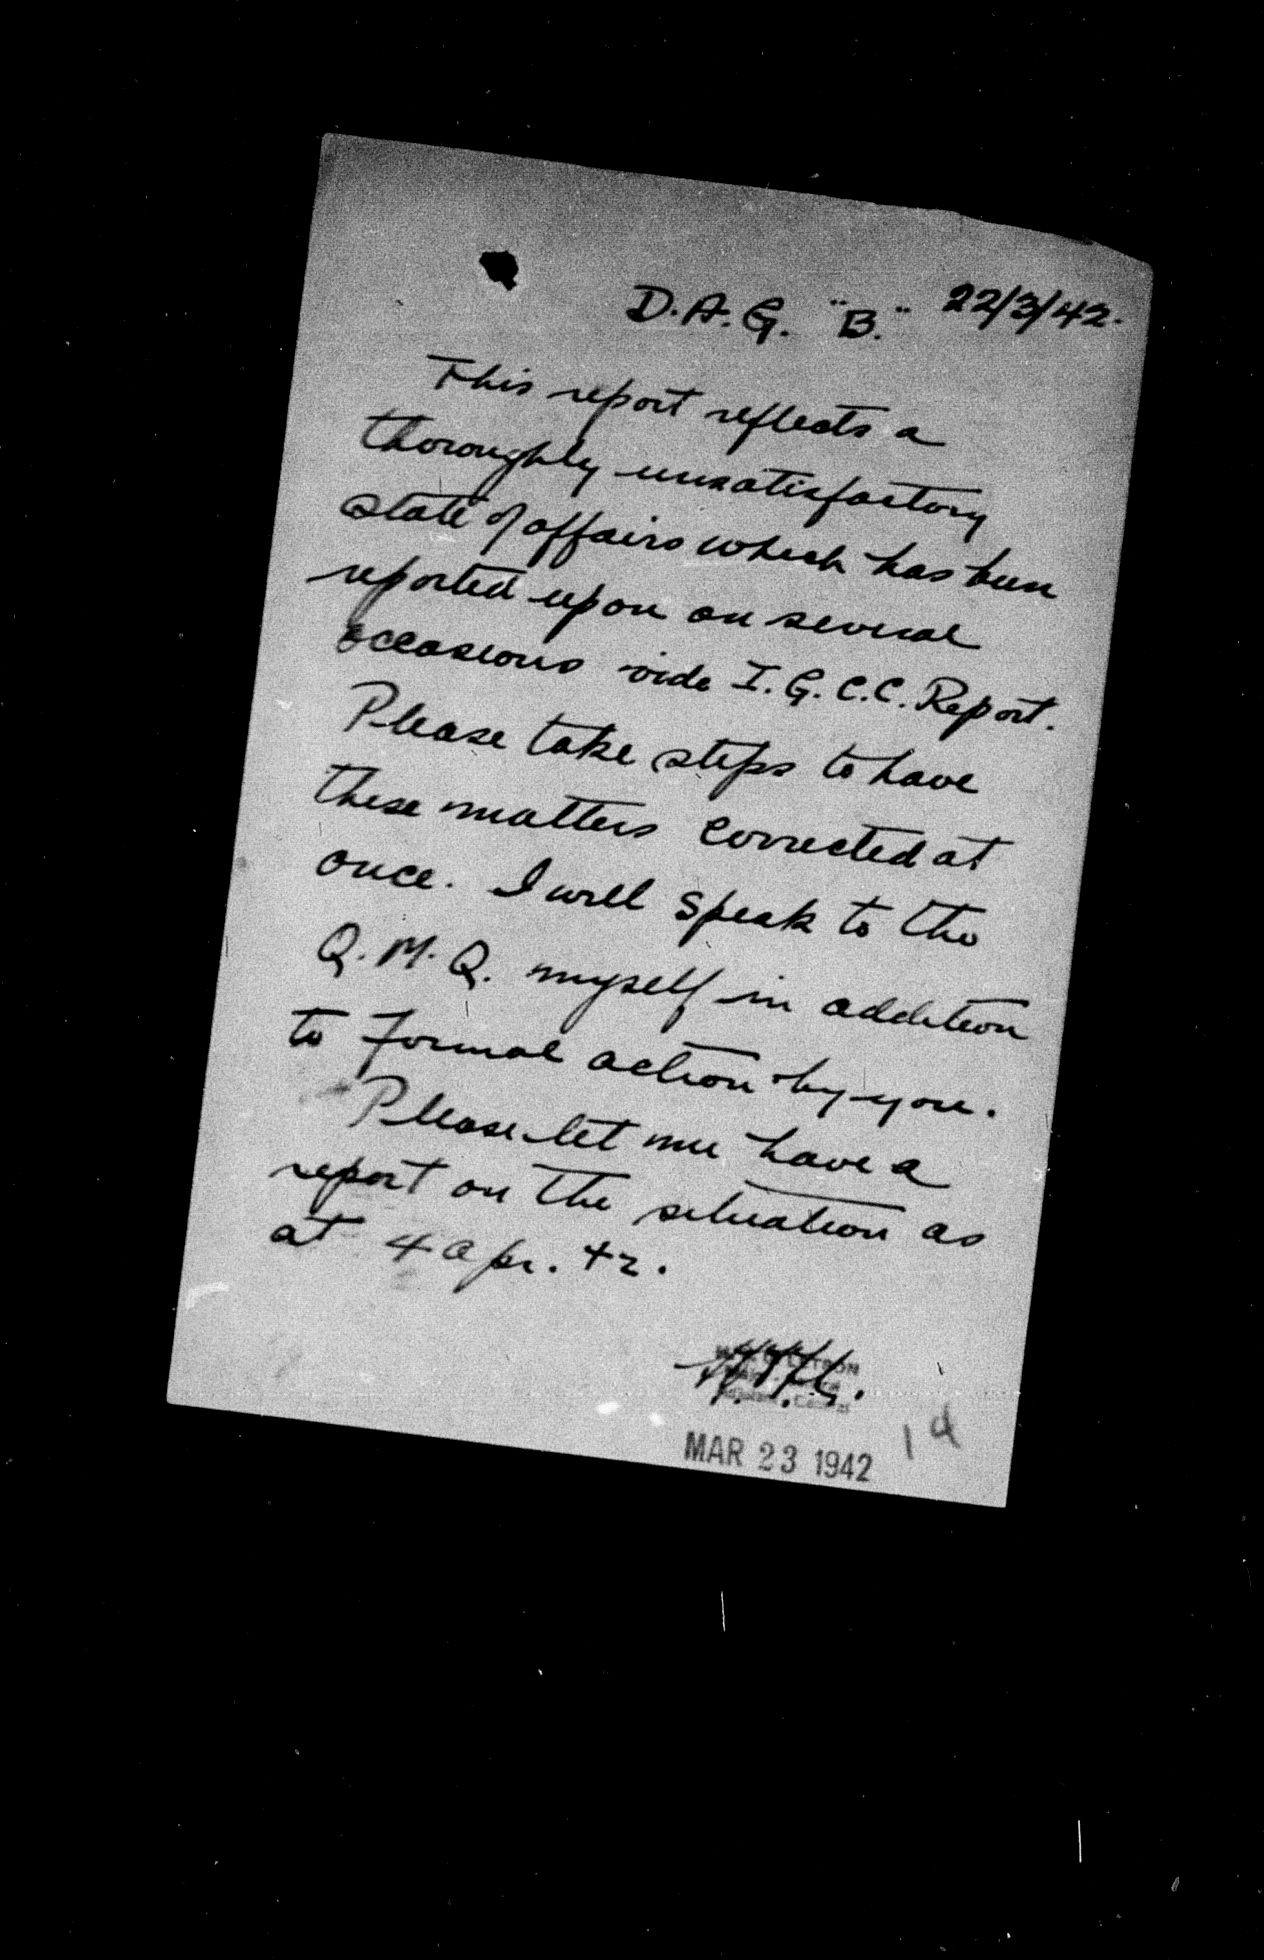 D.A.G. "B." 22/3/42.
This report reflects a
thoroughly unsatisfactory
state of affairs which has been
reported upon on several
occasions vide I.G.C.C. Report.
Please take steps to have
these matters corrected at
once. I will speak to the
Q.M.G. myself in addition
to formal action by you.
Please let me have a
report on the situation as
at 4 Apr. 42.
MAR 23 1942
1d